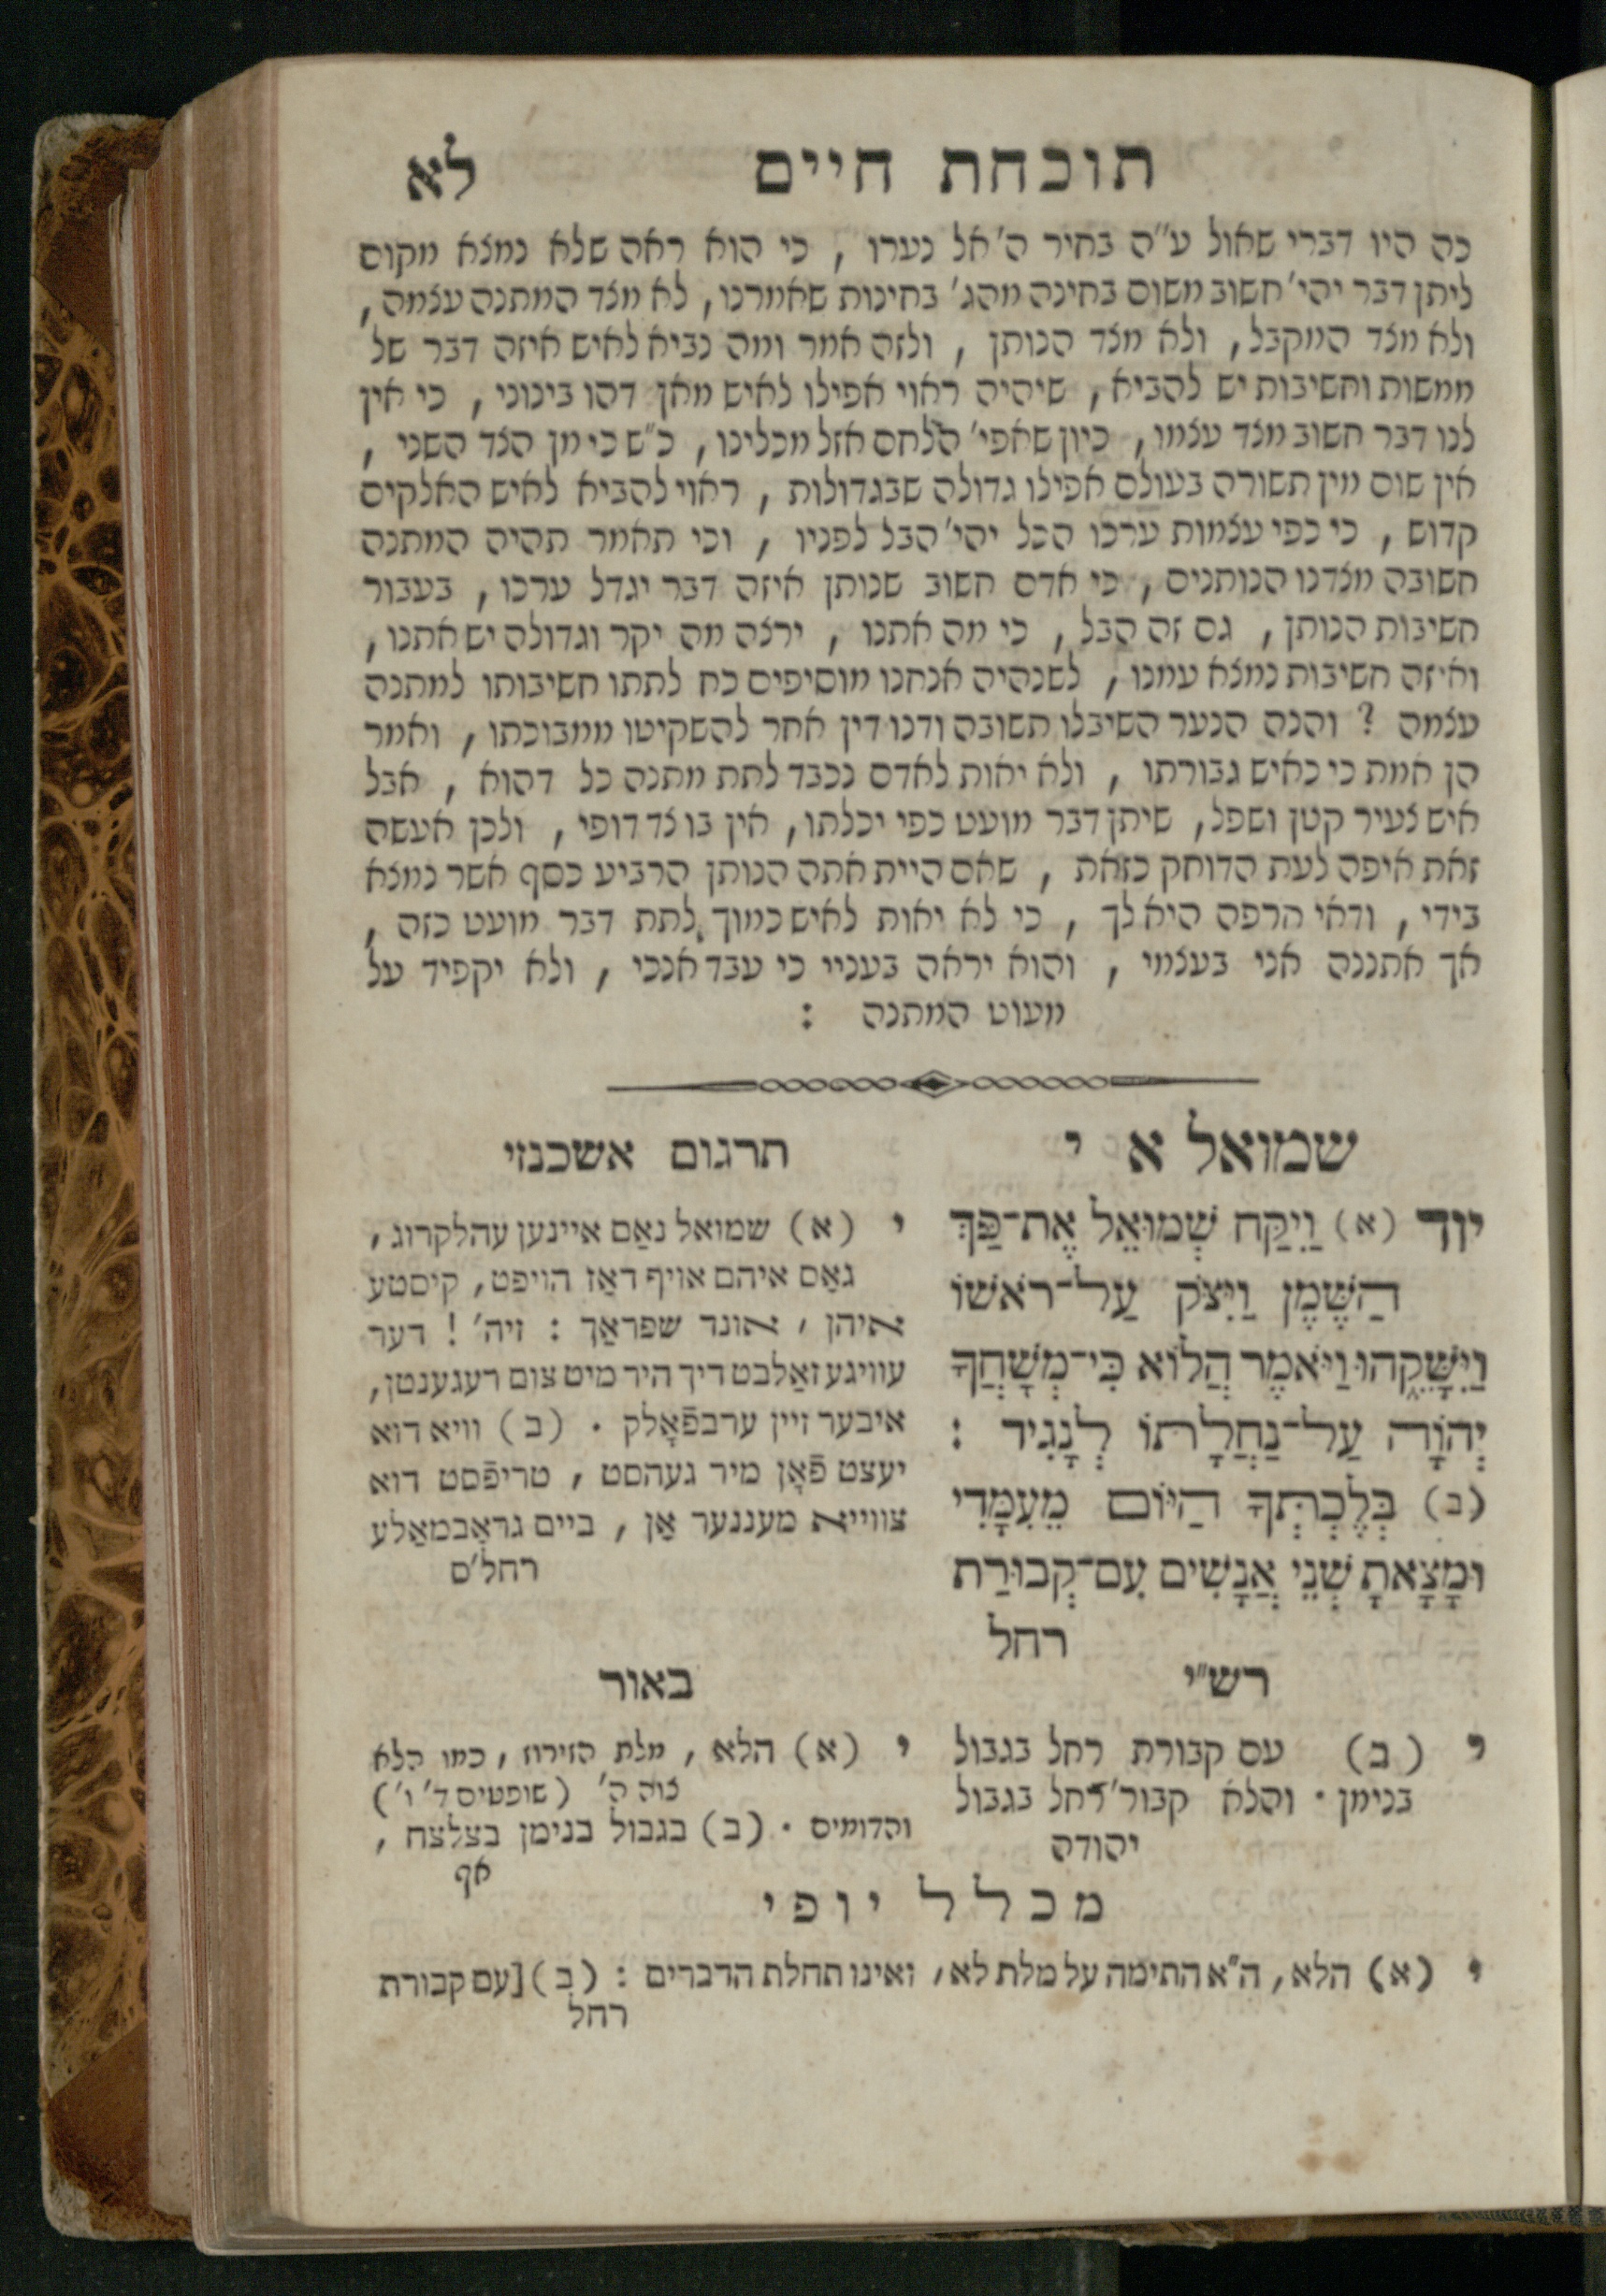 תוכחת חיים
לא
כה היו דברי שאול ע״ה בחיר ה׳ אל נערו , כי הוא ראה שלא נמצא מקום
ליתן דבר יהי׳ חשוב משום בחינה מהג׳ בחינות שאמרנו, לא מצד המתנה עצמה,
ולא מצד המקבל, ולא מצד הנותן , ולזה אמר ומה נביא לאיש איזה דבר של
ממשות וחשיבות יש להביא, שיהיה ראוי אפילו לאיש מאן דהו בינוני, כי אין
לנו דבר חשוב מצד עצמו, כיון שאפי׳ הלחם אזל מכלינו, כ״ש כי מן הצד השני ,
אין שום מין תשורה בעולם אפילו גדולה שבגדולות, ראוי להביא לאיש האלקים
קדוש, כי כפי עצמות ערכו הכל יהי׳ הבל לפניו , וכי תאמר תהיה המתנה
חשובה מצדנו הנותנים, כי אדם חשוב שנותן איזה דבר יגדל ערכו, בעבור
חשיבות הנותן, גם זה הבל, כי מה אתנו , ירצה מה יקר וגדולה יש אתנו,
ואיזה חשיבות נמצא עמנו, לשנהיה אנחנו מוסיפים כח לתתו חשיבותו למתנה
עצמה ? והנה הנער השיבלו תשובה ודנו דין אחר להשקיטו ממבוכתו, ואמר
הן אמת כי כאיש גבורתו , ולא יאות לאדם נכבד לתת מתנה כל דהוא , אבל
איש צעיר קטן ושפל, שיתן דבר מועט כפי יכלתו, אין בו צד דופי, ולכן אעשה
זאת איפה לעת הדוחק כזאת , שאם היית אתה הנותן הרביע כסף אשר נמצא
בידי, ודאי הרפה היא לך , כי לא יאות לאיש כמוך לתת דבר מועט כזה ,
אך אתננה אני בעצמי , והוא יראה בעניי כי עבד אנכי, ולא יקפיד על
מעוט המתנה :
שמואל א י
יוד (א) וַיִקַּח שְׁמוּאֵל אֶת־פַּךְ
הַשֶּׁמֶן וַיִּצֹק עַל־רֹאשׁוֹ
וַיִּשָּׁקֵהוּ וַיֹּאמֶר הֲלוֹא כִּי־מְשָׁחֲךָ
יְהוָֹה עַל־נַחֲלָתוֹ לְנָגִיד :
(ב) בְּלֶכְתְּךָ הַיּוֹם מֵעִמָּדִי
וּמָצָאתָ שְׁנֵי אֲנָשִׁים עִם־קְבוּרַת
רחל
תרגום אשכנזי
י (א) שמואל נאַם איינען עהלקרוג,
גאַס איהם אויף דאַז הויפט, קיסטע
איהן, אונד שפראַך : זיה׳ ! דער
עוויגע זאַלבט דיך היר מיט צום רעגענטן,
איבער זיין ערבפֿאָלק . (ב) וויא דוא
יעצט פֿאָן מיר געהסט, טריפֿסט דוא
צווייא מעננער אַן, ביים גראַבמאַלע
רחל׳ס
רש״י
י (ב) עם קבורת רחל בגבול
בנימן . והלא קבור׳ רחל בגבול
יהודה
באור
י (א) הלא, מלת הזירוז, כמו הלא
צוה ה׳ (שופטים ד׳ ו׳)
והדומים . (ב) בגבול בנימן בצלצח,
אף
מכלל יופי
י (א) הלא, ה״א התימה על מלת לא, ואינו תחלת הדברים : (ב) [עם קבורת
רחל